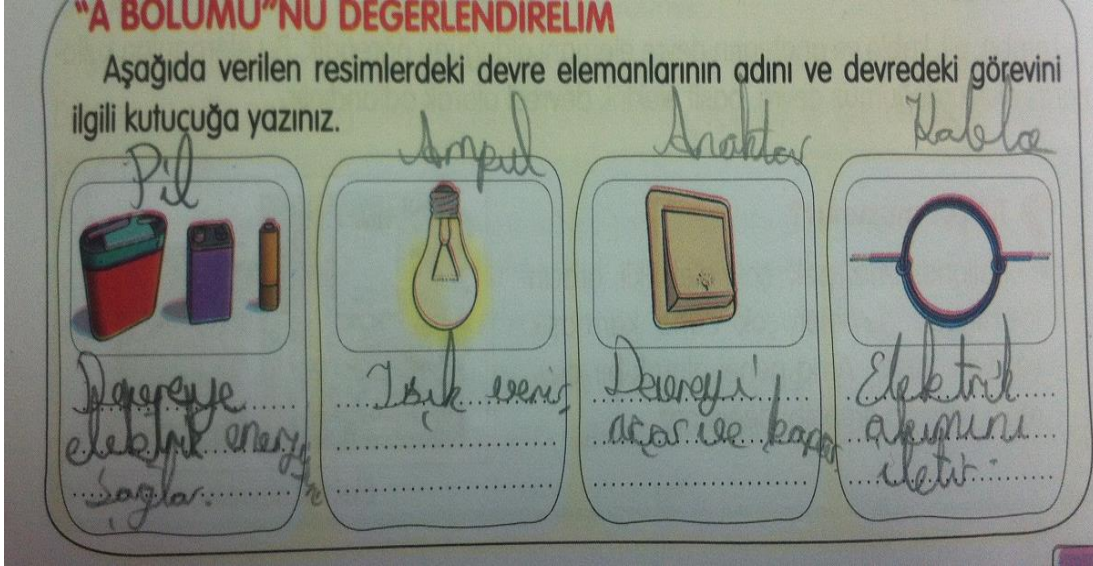 "A BÖLÜMÜ"NÜ DEĞERLENDİRELİM
Aşağıda verilen resimlerdeki devre elemanlarının adını ve devredeki görevini
ilgili kutucuğa yazınız.
Pil
Ampul
Anahtar
Kablo
Devereye
elektrik enerjisi
sağlar.
Işık verir
Devereyi
açar ve kapar
Elektrik
akımını
iletir